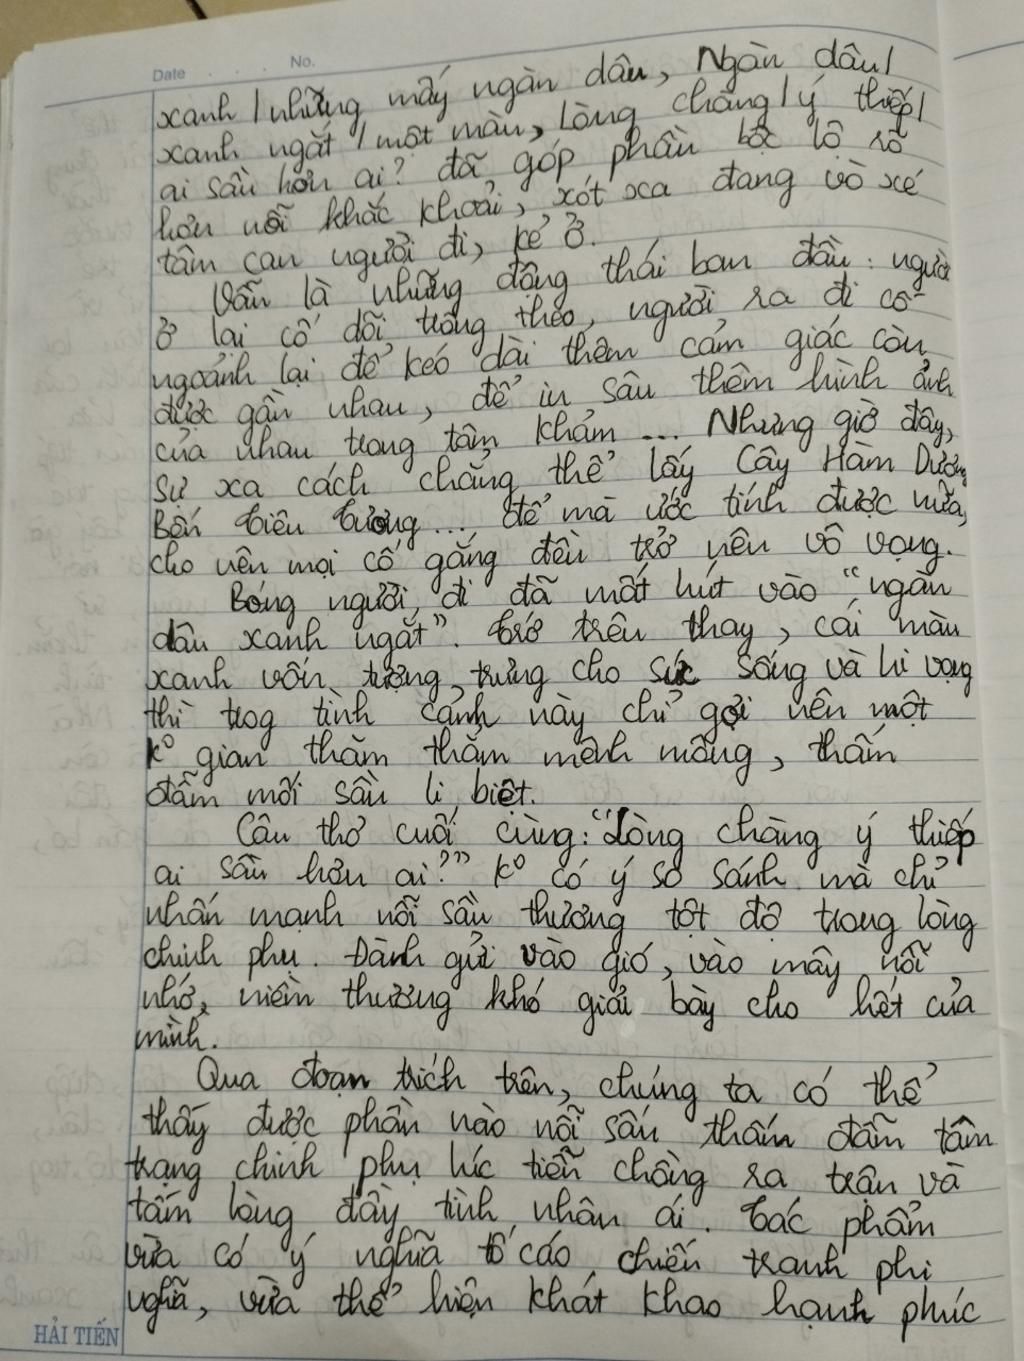 Date . . . No.
xanh / những mấy ngàn dâu, Ngàn dâu /
xanh ngắt / một màu, lòng chàng / ý thiếp /
ai sầu hơn ai? đã góp phần bộc lộ rõ
hơn nỗi khắc khoải, xót xa đang vò xé
tâm can người đi, kẻ ở.
Vẫn là những động thái ban đầu: người
ở lại cố dõi trông theo, người ra đi cố
ngoảnh lại để kéo dài thêm cảm giác còn
được gần nhau, để in sâu thêm hình ảnh
của nhau trong tâm khảm ... Nhưng giờ đây,
sự xa cách chẳng thể lấy Cây Hàm Dương
Bến Tiêu Tương ... để mà ước tính được nữa,
cho nên mọi cố gắng đều trở nên vô vọng.
Bóng người đi đã mất hút vào "ngàn
dâu xanh ngắt". Trớ trêu thay, cái màu
xanh vốn tượng trưng cho sức sống và hi vọng
thì trog tình cảnh này chỉ gợi nên một
k⁰ gian thăm thẳm mênh mông, thấm
đẫm mối sầu li biệt.
Câu thơ cuối cùng: "Lòng chàng ý thiếp
ai sầu hơn ai?" k⁰ có ý so sánh mà chỉ
nhấn mạnh nỗi sầu thương tột độ trong lòng
chinh phụ. Đành gửi vào gió, vào mây nỗi
nhớ, niềm thương khó giãi bày cho hết của
mình.
Qua đoạn trích trên, chúng ta có thể
thấy được phần nào nỗi sầu thấm đẫm tâm
trạng chinh phụ lúc tiễn chồng ra trận và
tấm lòng đầy tình nhân ái. Tác phẩm
vừa có ý nghĩa tố cáo chiến tranh phi
nghĩa, vừa thể hiện khát khao hạnh phúc
HẢI TIẾN